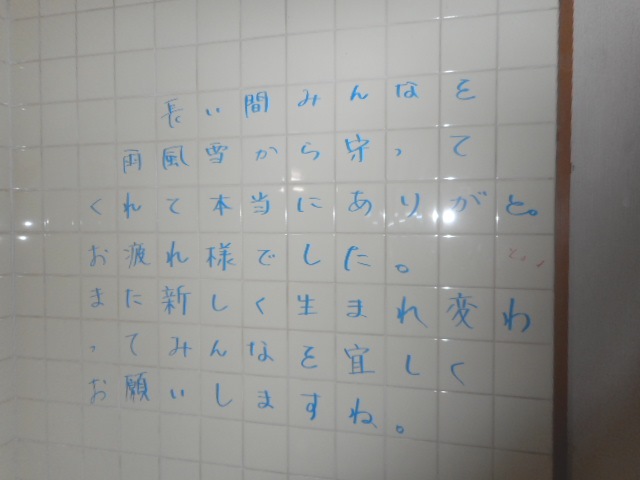 長い間みんなを
雨風雪から守って
くれて本当にありがと。
お疲れ様でした。
また新しく生まれ変わ
ってみんなを宜しく
お願いしますね。